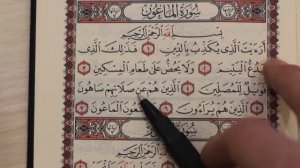 سُورَةُ الْمَاعُونِ
بِسْمِ اللَّهِ الرَّحْمَٰنِ الرَّحِيمِ
أَرَءَيْتَ الَّذِي يُكَذِّبُ بِالدِّينِ ١ فَذَٰلِكَ الَّذِي
يَدُعُّ الْيَتِيمَ ٢ وَلَا يَحُضُّ عَلَىٰ طَعَامِ الْمِسْكِينِ ٣
فَوَيْلٌ لِلْمُصَلِّينَ ٤ الَّذِينَ هُمْ عَنْ صَلَاتِهِمْ سَاهُونَ
٥ الَّذِينَ هُمْ يُرَاءُونَ ٦ الْمَاعُونَ ٧
سُورَةُ